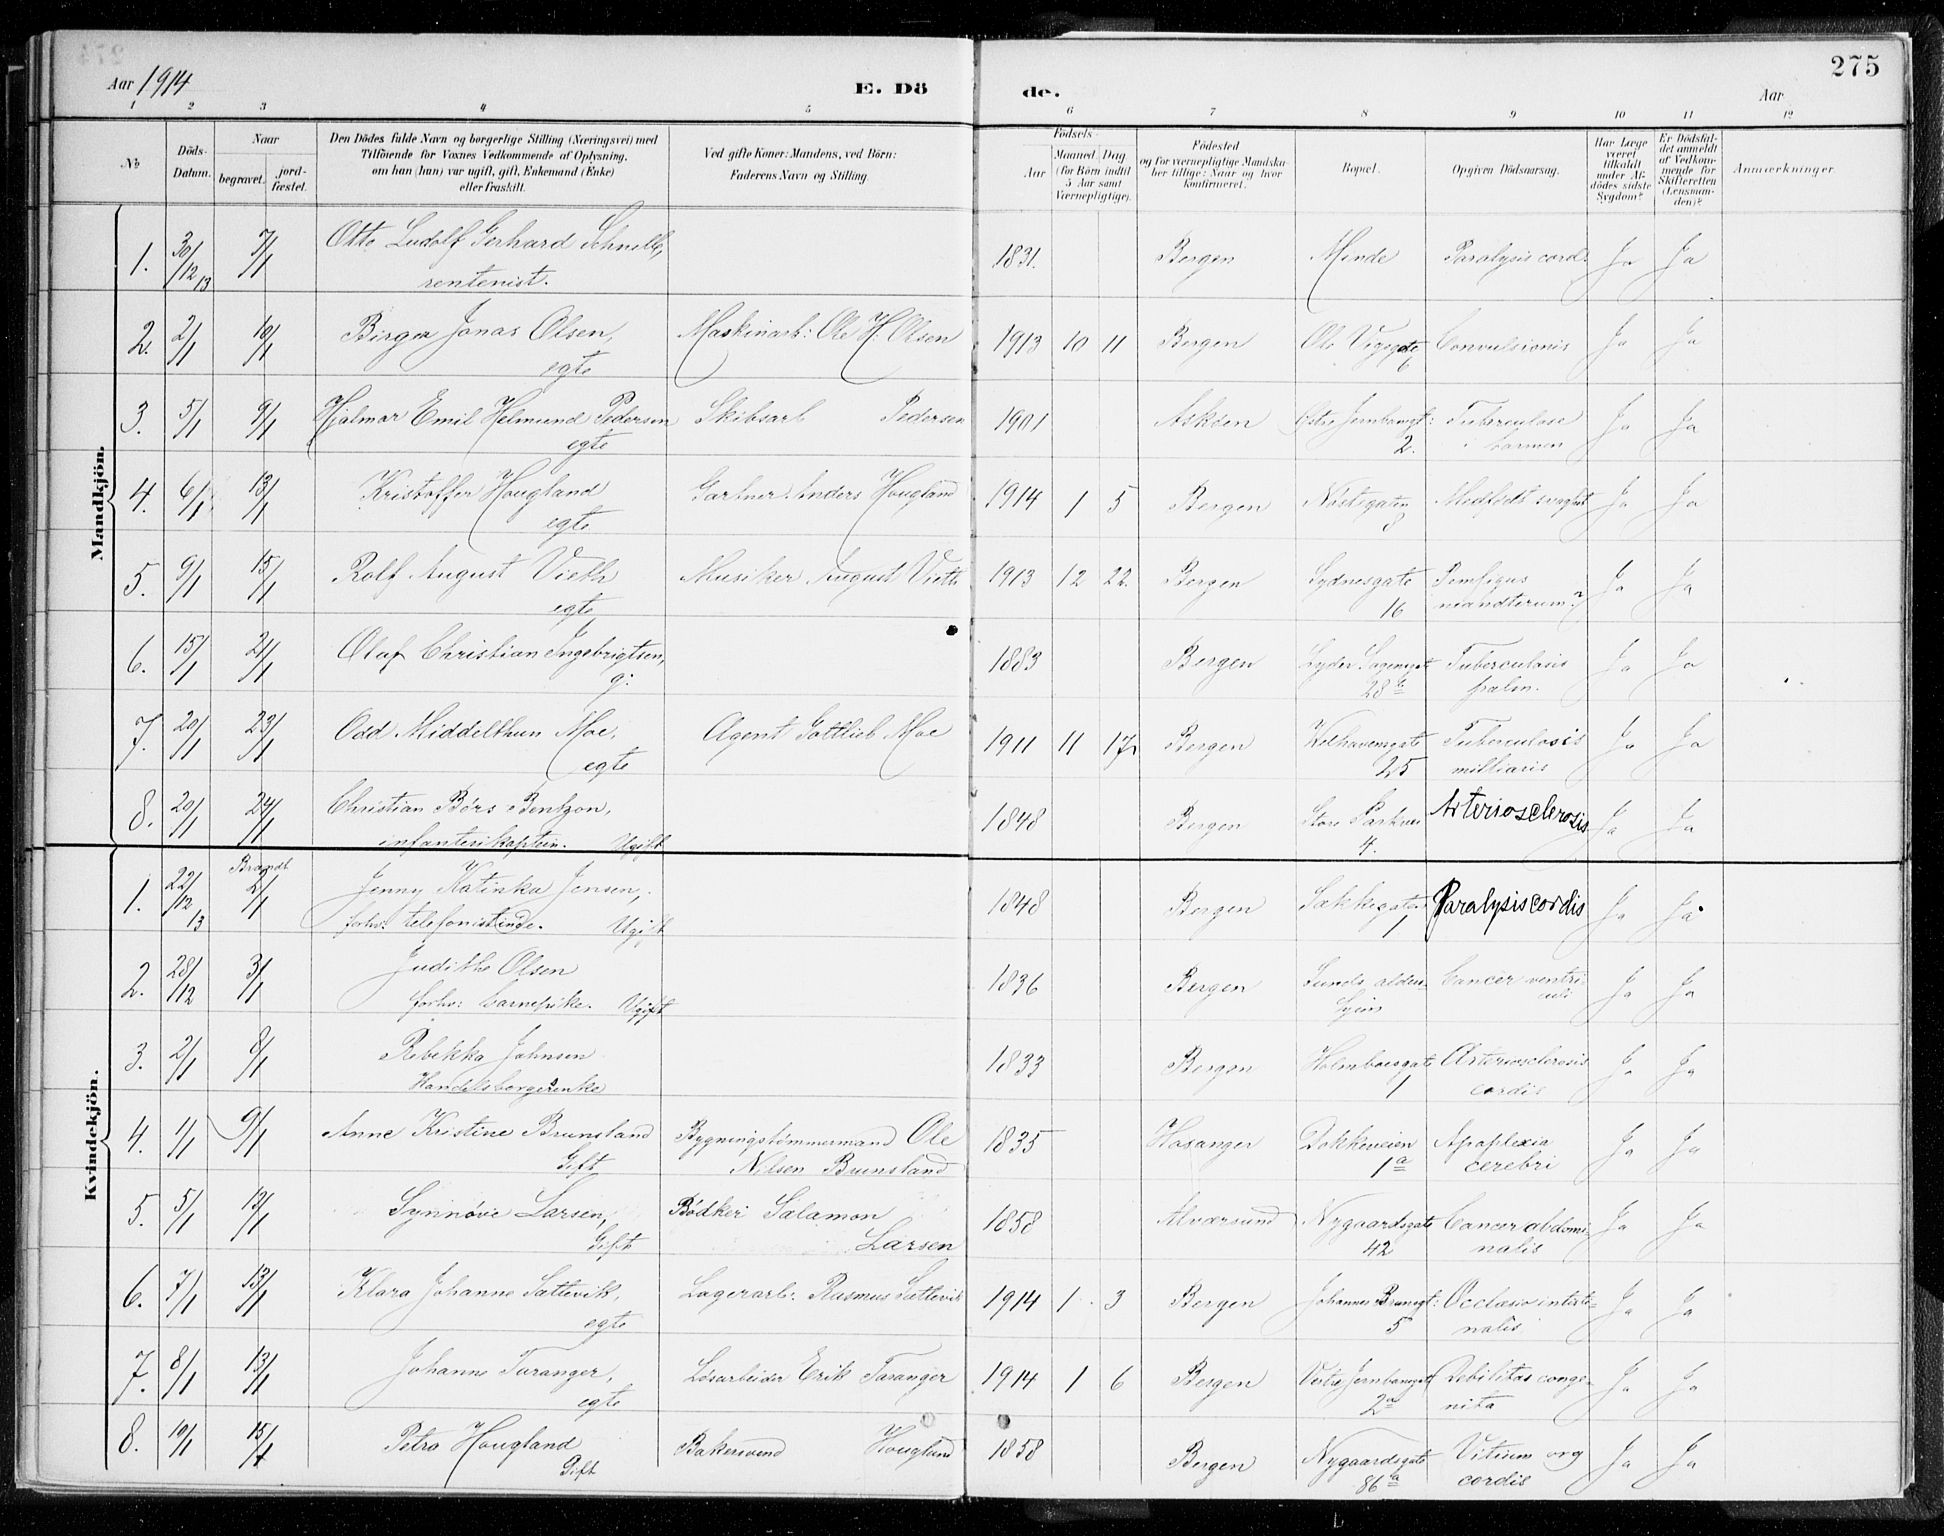 274
275
Aar 1914
E. Dö
de.
Aar
1 2 3 4 5 6 7 8 9 10 11 12
No
Döds-Datum.
Naar
begravet.
jord-fæstet.
Den Dödes fulde Navn og borgerlige Stilling (Næringsvei) med
Tilföiende for Voxnes Vedkommende af Oplysning,
om han (hun) var ugift, gift, Enkemand (Enke)
eller fraskilt.
Ved gifte Koner: Mandens, ved Börn:
Faderens Navn og Stilling
Födsels-
Aar
Maaned Dag
(for Börn indtil
5 Aar samt
Værnepligtige).
Födested
og for værnepligtige Mandska-
ber tillige: Naar og hvor
konfirmeret.
Bopæl.
Opgiven Dödsaarsag.
Har Læge
været
tilkaldt
under Af-
dödes sidste
Sygdom?
Er Dödsfal-
det anmeldt
af Vedkom-
mende for
Skifteretten
(Lensman-
den)?
Anmærkninger.
Mandkjön.
1. 30/12 13 7/1 Otto Ludolf Gerhard Schnelle, 1831. Bergen Minde Paralysis cord. Ja Ja
rentenist.
2. 2/1 10/1 Birger Jonas Olsen, Maskinarb: Ole H. Olsen 1913 10 11 Bergen Ole Vigsgate Convulsionis Ja Ja
egte 6
3. 5/1 9/1 Hjalmar Emil Helmund Pedersen Skibsarb Pedersen 1901 Askøen Østre Jernbanegt: Tuberculose Ja Ja
egte 2. i tarmen
4. 6/1 13/1 Kristoffer Hougland Gartner Anders Hougland 1914 1 5 Bergen Nøstegaten Medfødt svaghet Ja Ja
egte 8
5. 9/1 15/1 Rolf August Vieth Musiker August Vieth 1913 12 22. Bergen Sydnesgate Pemfigus Ja Ja
egte 16 neandterum?
6. 15/1 21/1 Olaf Christian Ingebrigtsen, 1883 Bergen Lyder Sagensgt Tuberculosis Ja Ja
g: 28 b palm.
7. 20/1 23/1 Odd Middelthun Moe, Agent Gottlieb Moe 1911 11 17 Bergen Welhavensgate Tuberculosis Ja Ja
egte 25 milliaris
8. 20/1 24/1 Christian Børs Bentzon, 1848 Bergen Store Parkvei Arteriosclerosis Ja Ja
infanterikaptein. Ugift 4.
Kvindekjön.
1. 22/12 13 Brændt 2/1 Jenny Katinka Jensen, 1848 Bergen Sækkegaten Paralysis cordis Ja Ja
forhv: telefonistinde. Ugift 1
2. 28/12 3/1 Judithe Olsen 1836 Bergen Sunds alders- Cancer ventri- Ja Ja
forhv: barnepike. Ugift hjem culi
3. 2/1 8/1 Rebekka Johnsen 1833 Bergen Holmboesgate Arteriosclerosis Ja Ja
Handelsborgerenke 1 cordis
4. 1/1 9/1 Anne Kristine Brunsland Bygningstømmermand Ole 1835 Hosanger Dokkeveien Apoplexia Ja Ja
Gift Nilsen Brunsland 1 a cerebri
5. 5/1 12/1 Synnøve Larsen, Bødker Salamon 1858 Alversund Nygaardsgate Cancer abdomi- Ja Ja
Gift Larsen 42 nalis
6. 7/1 13/1 Klara Johanne Sættevik, Lagerarb: Rasmus Sættevik 1914 1 3 Bergen Johannes Brunsgt: Occlusio intesti- Ja Ja
egte 5 nalis
7. 8/1 13/1 Johanne Taranger, Løsarbeider Erik Taranger 1914 1 6 Bergen Vestre Jernbanegt Debilitas conge- Ja Ja
egte 2 a nita
8. 10/1 15/1 Petra Hougland Bakersvend Hougland 1858 Bergen Nygaardsgate Vitium org Ja Ja
Gift 86 a cordis